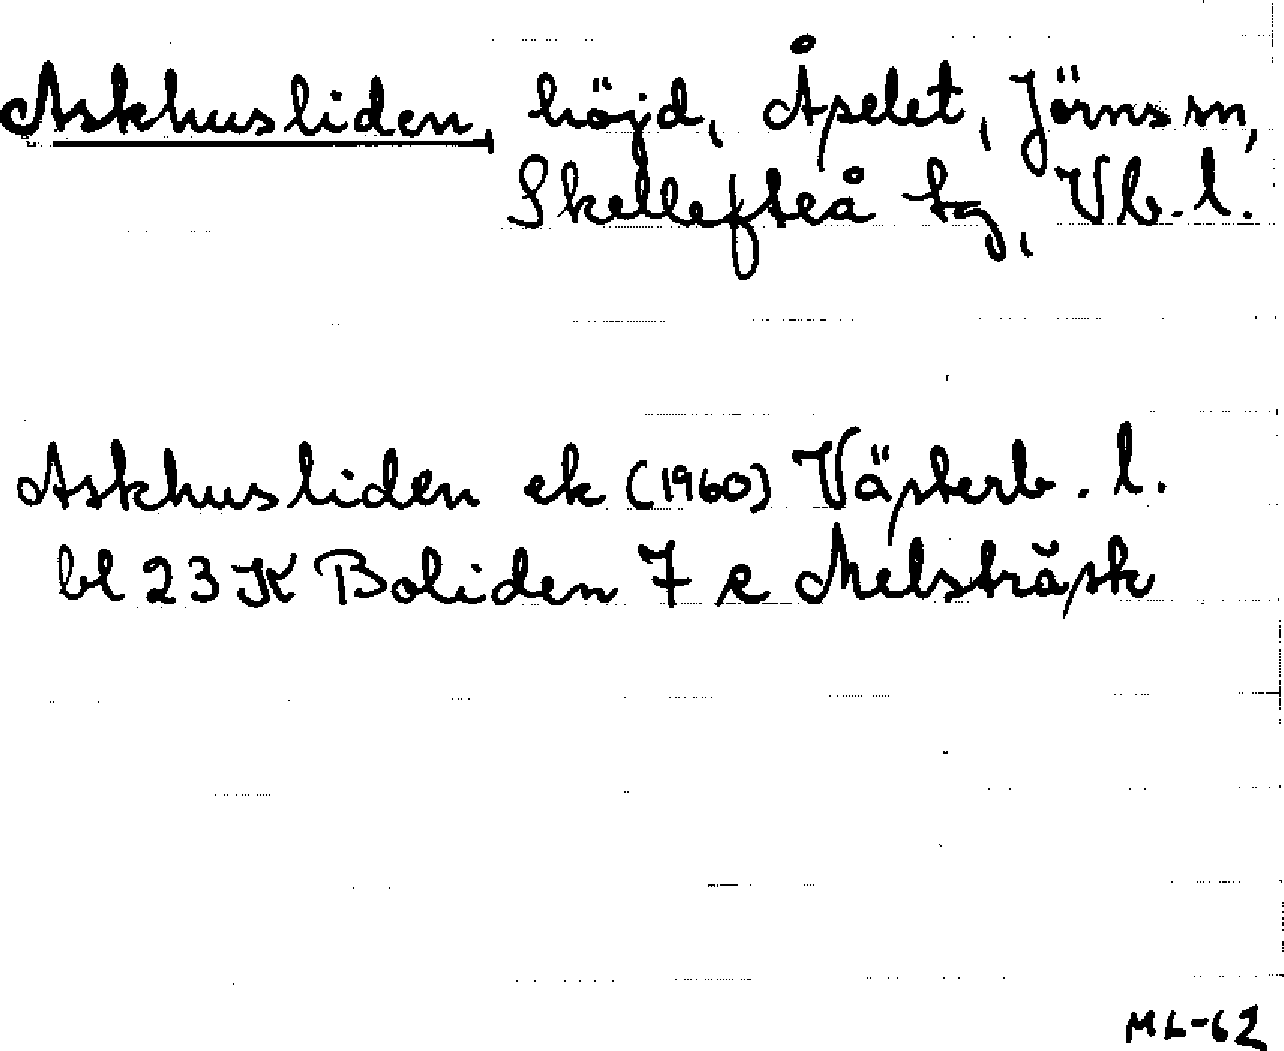 Askhusliden, höjd, Åselet, Jörns sn,
Skellefteå tg, Vb. l.
Askhusliden ek (1960) Västerb. l.
bl 23 K Boliden 7 e Melsträsk
ML-62